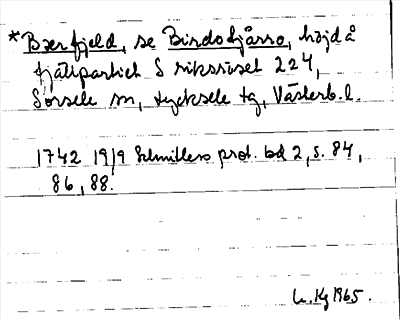 *Bærfjeld, se Birdotjårro, höjd å
fjällpartiet S riksröset 224,
Sorsele sn, Lycksele tg, Västerb. l.
1742 19/9 Schnitlers prot. bd 2, s. 84,
86, 88.
Kg 1965.